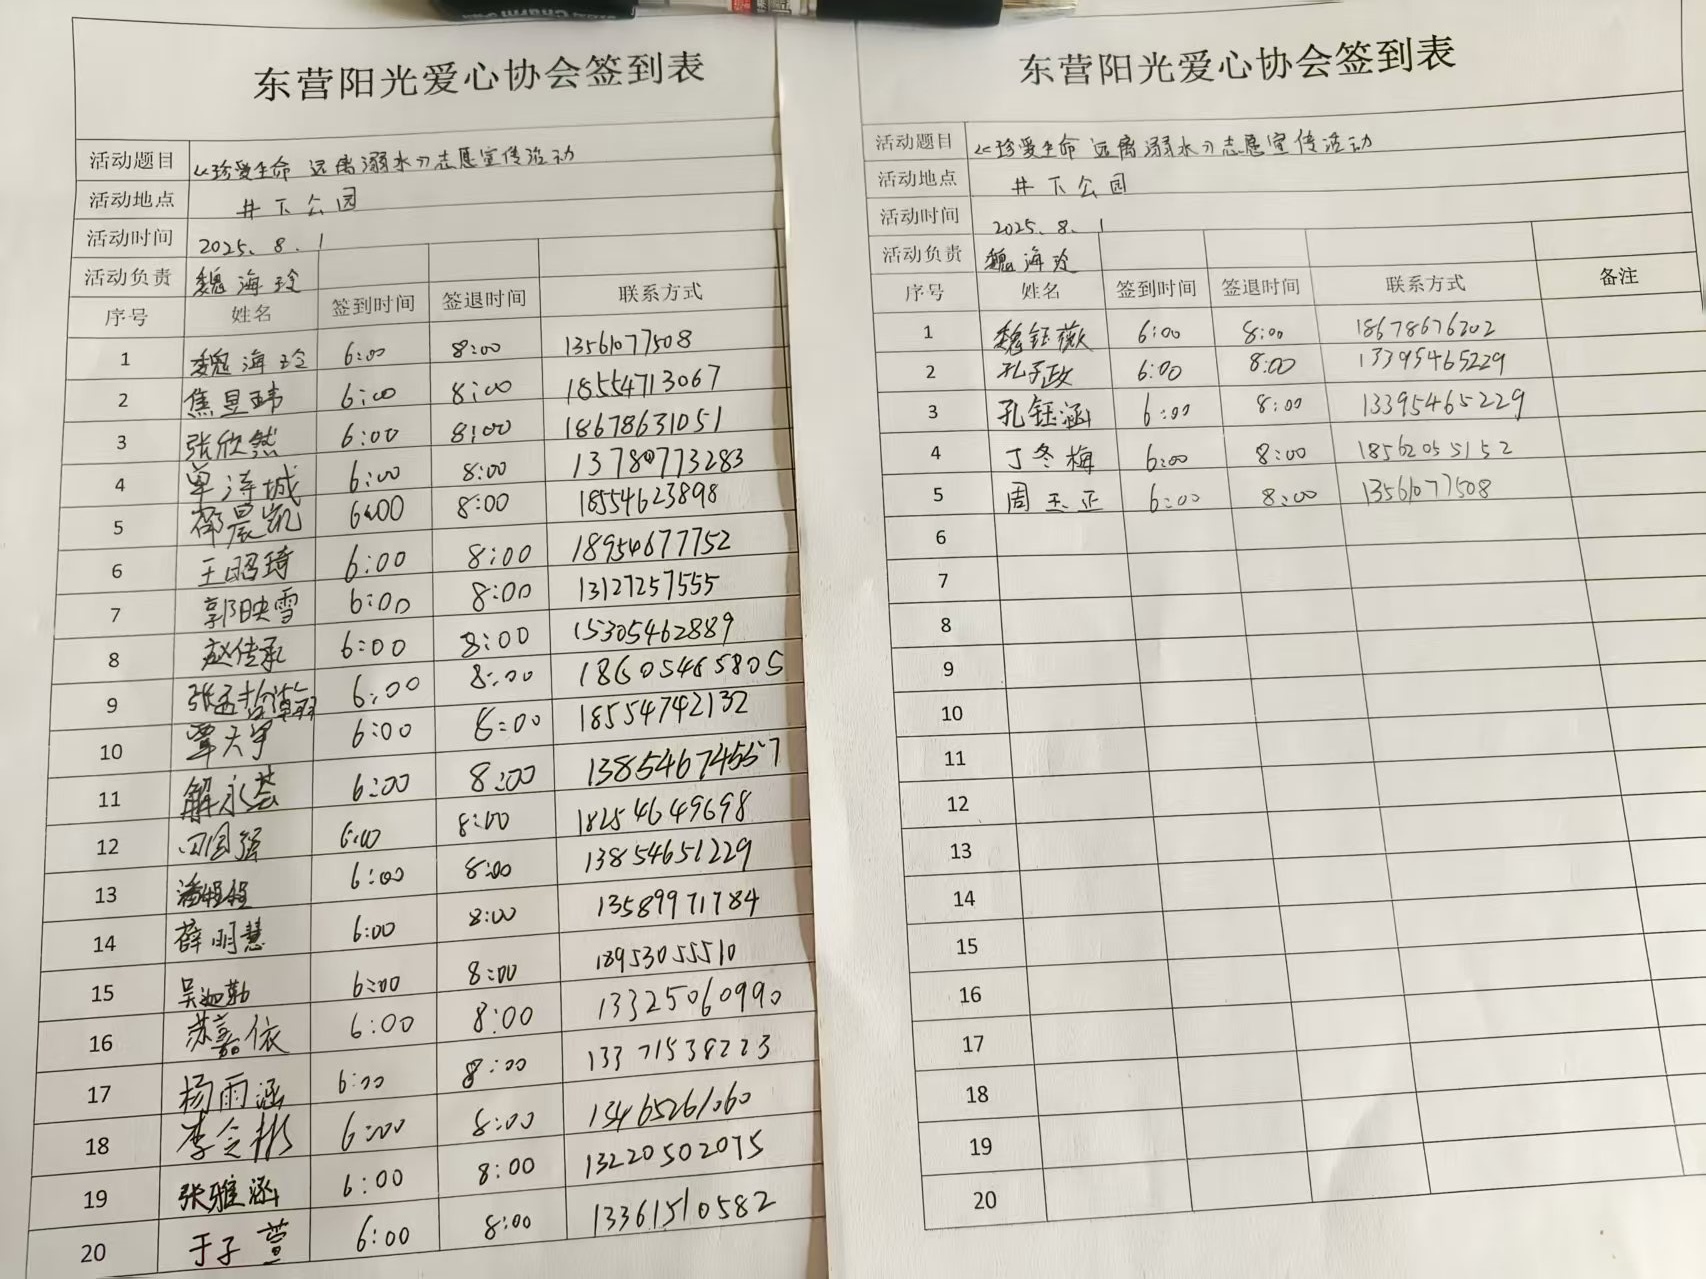 东营阳光爱心协会签到表
活动题目 《珍爱生命 远离溺水》志愿宣传活动
活动地点 井下公园
活动时间 2025.8.1
活动负责 魏海玲
序号 姓名 签到时间 签退时间 联系方式
1 魏海玲 6:00 8:00 13561077508
2 焦昱玮 6:00 8:00 18554713067
3 张欣然 6:00 8:00 18678631051
4 单涛城 6:00 8:00 13780773283
5 郗晨凯 6:00 8:00 18554623898
6 王昭琦 6:00 8:00 18954677752
7 郭映雪 6:00 8:00 13127257555
8 赵传承 6:00 8:00 15305462889
9 张孟 6:00 8:00 18605465805
10 覃天宇 6:00 8:00 18554742132
11 解永 6:00 8:00 13854674557
12 国强 6:00 8:00 18254649698
13 潘 6:00 8:00 13854651229
14 薛明慧 6:00 8:00 13589971784
15 吴迦勒 6:00 8:00 18953055510
16 苏嘉依 6:00 8:00 13325060990
17 杨雨涵 6:00 8:00 13371538223
18 李令彬 6:00 8:00 13465261060
19 张雅涵 6:00 8:00 13220502075
20 于子萱 6:00 8:00 13361510582
东营阳光爱心协会签到表
活动题目 《珍爱生命 远离溺水》志愿宣传活动
活动地点 井下公园
活动时间 2025.8.1
活动负责 魏海玲
序号 姓名 签到时间 签退时间 联系方式 备注
1 魏钰薇 6:00 8:00 18678676202
2 孔子政 6:00 8:00 13395465229
3 孔钰涵 6:00 8:00 13395465229
4 丁冬梅 6:00 8:00 18562055152
5 周玉正 6:00 8:00 13561077508
6
7
8
9
10
11
12
13
14
15
16
17
18
19
20